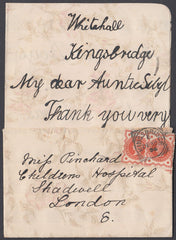 Whitehall
Kingsbridge
My dear Auntie Sibyl
Thank you very
Miss Pinchard
Childrens Hospital
Shadwell
London
E.